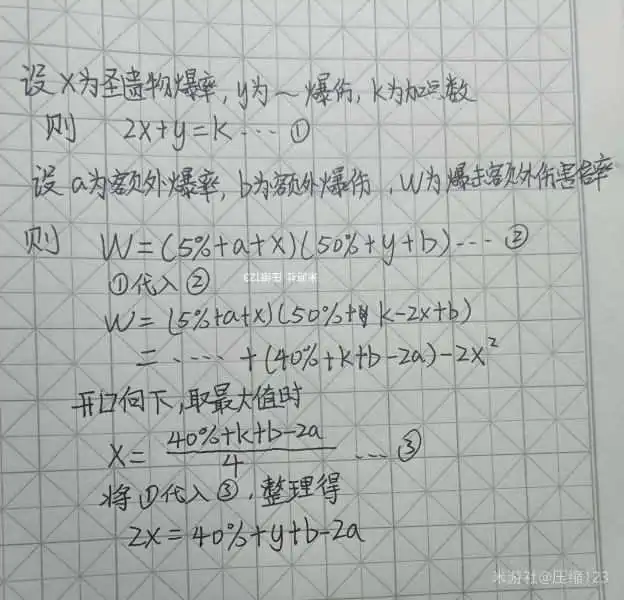 设X为圣遗物爆率,y为~爆伤,k为加点数
则 2x+y=k…①
设a为额外爆率,b为额外爆伤,W为爆击额外伤害倍率
则 W=(5%+a+x)(50%+y+b)…②
①代入②
W=(5%+a+x)(50%+k-2x+b)
=……+(40%+k+b-2a)-2x²
开口向下,取最大值时
X=(40%+k+b-2a)/4 …③
将①代入③,整理得
2x=40%+y+b-2a
米游社@压缩123